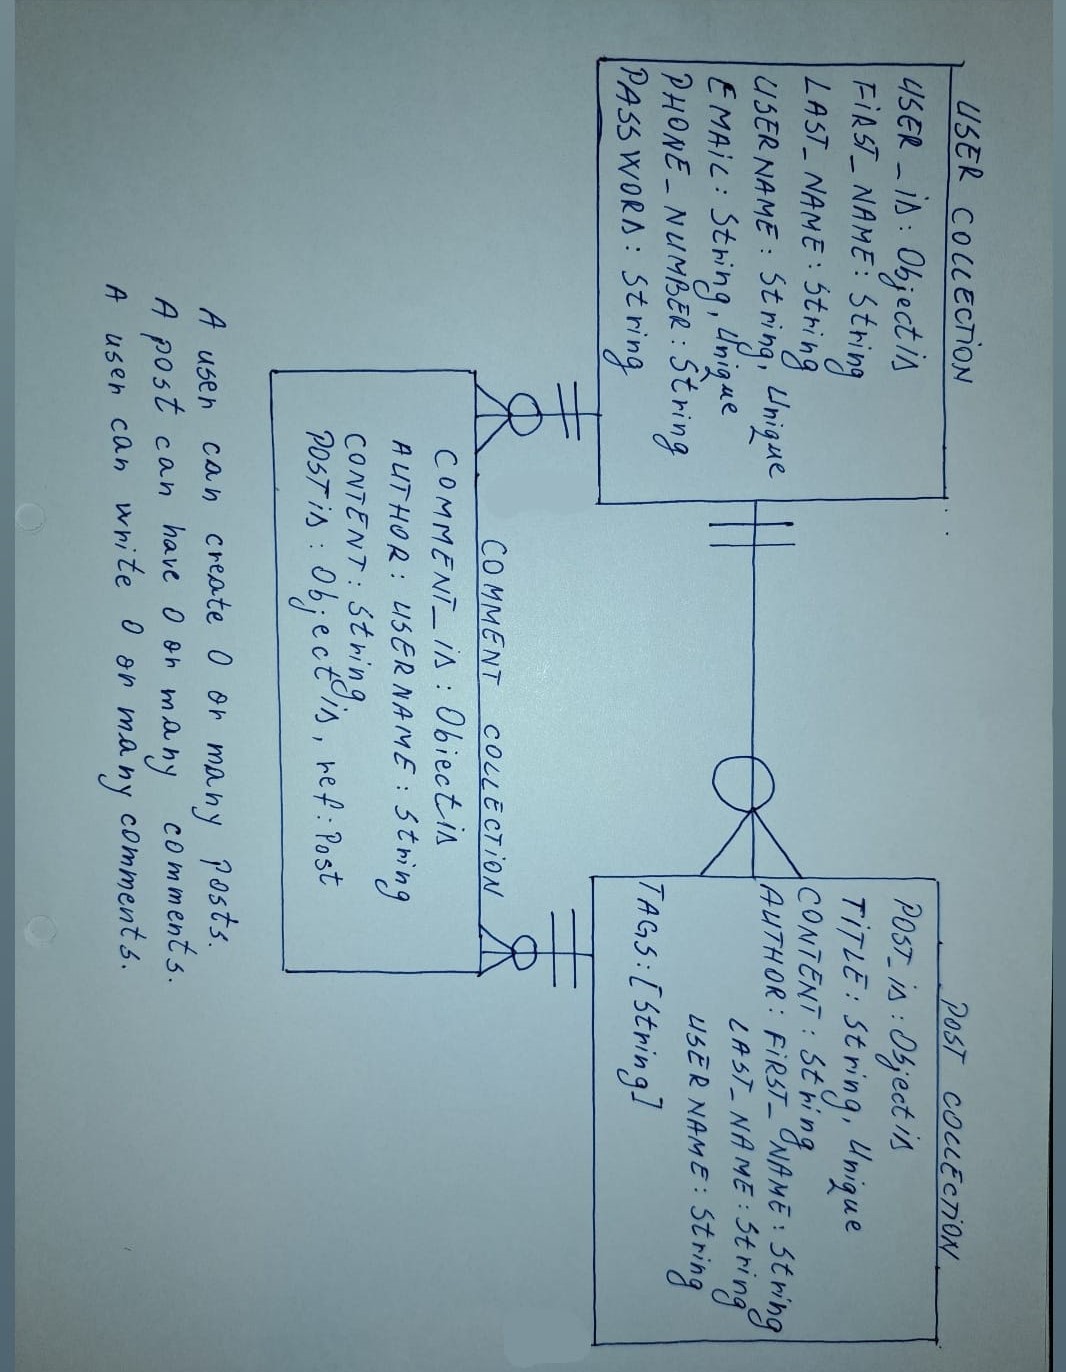 USER COLLECTION
USER_iD: ObjectiD
FiRST_NAME: String
LAST_NAME: String
USERNAME: String, Unique
EMAiL: String, Unique
PHONE_NUMBER: String
PASSWORD: String
POST COLLECTION
POST_iD: ObjectiD
TiTLE: String, Unique
CONTENT: String
AUTHOR: FiRST_NAME: String
LAST_NAME: String
USERNAME: String
TAGS: [String]
COMMENT COLLECTION
COMMENT_iD: ObjectiD
AUTHOR: USERNAME: String
CONTENT: String
POSTiD: ObjectiD, ref: Post
A user can create 0 or many posts.
A post can have 0 or many comments.
A user can write 0 or many comments.